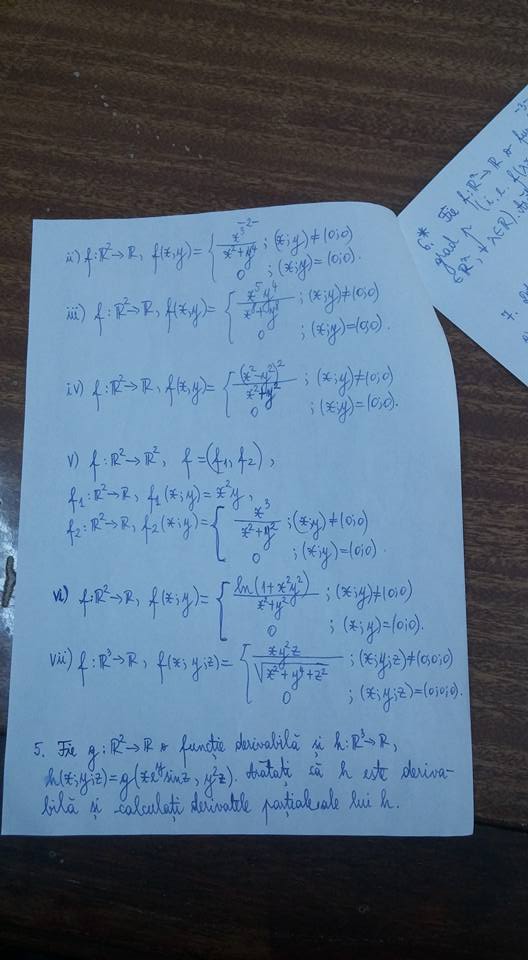 -2-
ii) f: ℝ²→ℝ, f(x;y) = { x³/(x²+y⁴) ; (x;y)≠(0;0)
0 ; (x;y)=(0;0).
iii) f: ℝ²→ℝ, f(x;y) = { x⁵y⁴/(x⁸+y⁸) ; (x;y)≠(0;0)
0 ; (x;y)=(0;0).
iv) f: ℝ²→ℝ, f(x;y) = { (x²-y²)²/(x²+y²) ; (x;y)≠(0;0)
0 ; (x;y)=(0;0).
v) f: ℝ²→ℝ², f=(f₁, f₂),
f₁: ℝ²→ℝ, f₁(x;y)=x²y,
f₂: ℝ²→ℝ, f₂(x;y) = { x³/(x²+y²) ; (x;y)≠(0;0)
0 ; (x;y)=(0;0).
vi) f: ℝ²→ℝ, f(x;y) = { ln(1+x²y²)/(x²+y²) ; (x;y)≠(0;0)
0 ; (x;y)=(0;0).
vii) f: ℝ³→ℝ, f(x;y;z) = { xy²z/√(x²+y⁴+z²) ; (x;y;z)≠(0;0;0)
0 ; (x;y;z)=(0;0;0).
5. Fie g: ℝ²→ℝ o funcție derivabilă și h: ℝ³→ℝ,
h(x;y;z)=g(xeʸsinz, y²z). Arătați că h este deriva-
bilă și calculați derivatele parțiale ale lui h.
-3-
6.* Fie f: ℝ²→ℝ o
grad p (i.e. f(
∈ℝ², ∀λ∈ℝ).
7.